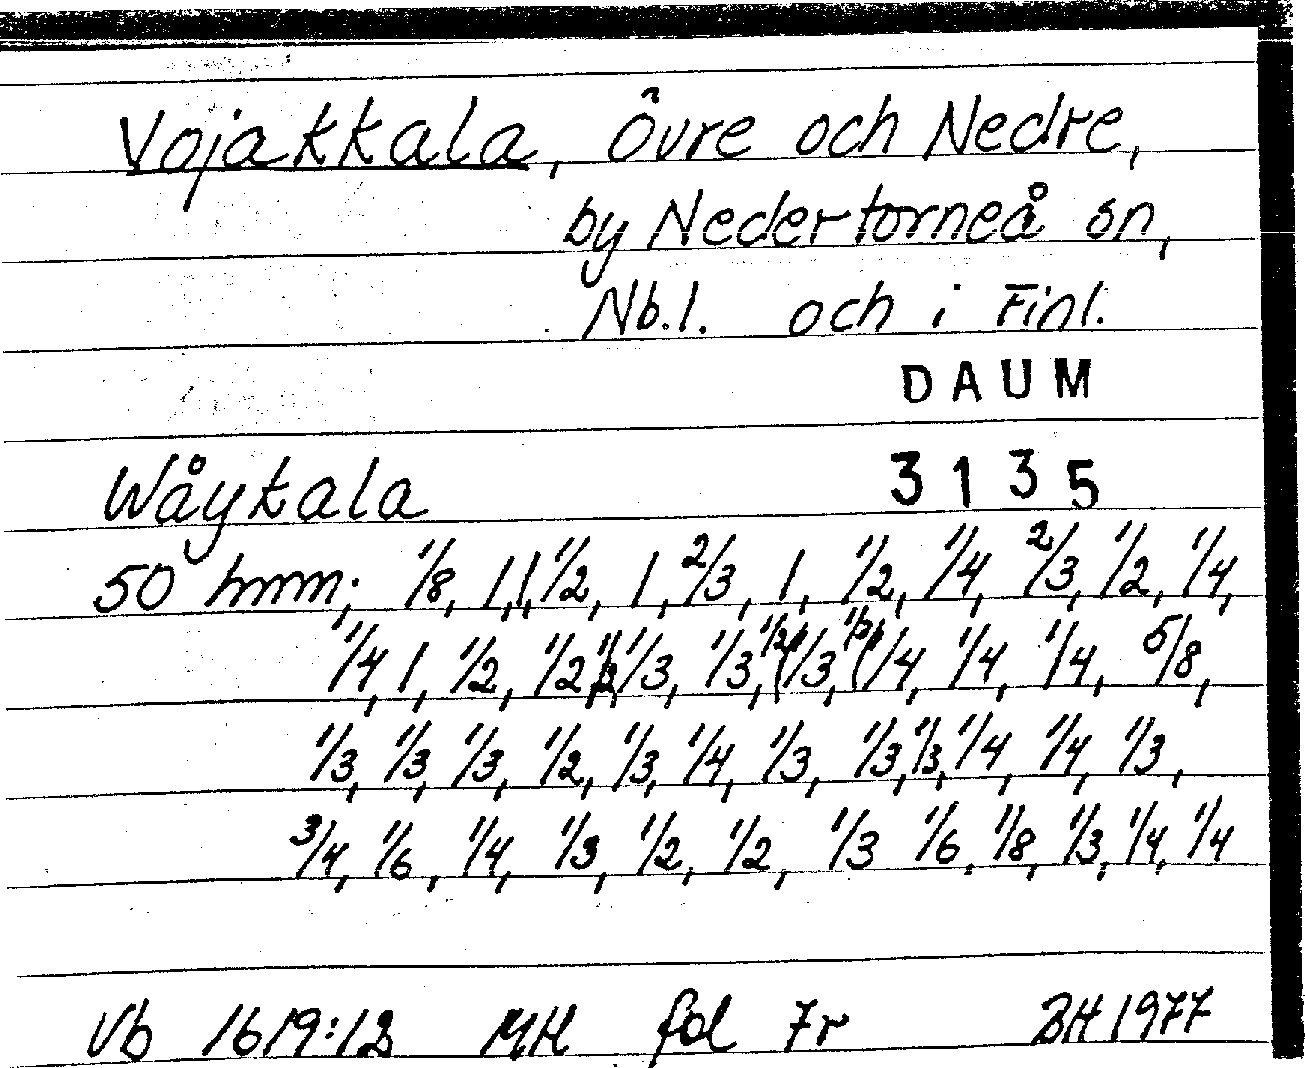 Vojakkala, Övre och Nedre,
by Nedertorneå sn,
Nb.l. och i Finl.
DAUM
Wåykala 3135
50 hmm; 1/8, 1, 1, 1/2, 1, 2/3, 1, 1/2, 1/4, 2/3, 1/2, 1/4,
1/4, 1, 1/2, 1/2, 1/3, 1/3, 1/3, 1/4, 1/4, 1/4, 5/8,
1/3, 1/3, 1/3, 1/2, 1/3, 1/4, 1/3, 1/3, 1/3, 1/4, 1/4, 1/3,
3/4, 1/6, 1/4, 1/3, 1/2, 1/2, 1/3 1/6, 1/8, 1/3, 1/4, 1/4
Vb 1619:12 MH fol 7r BH 1977